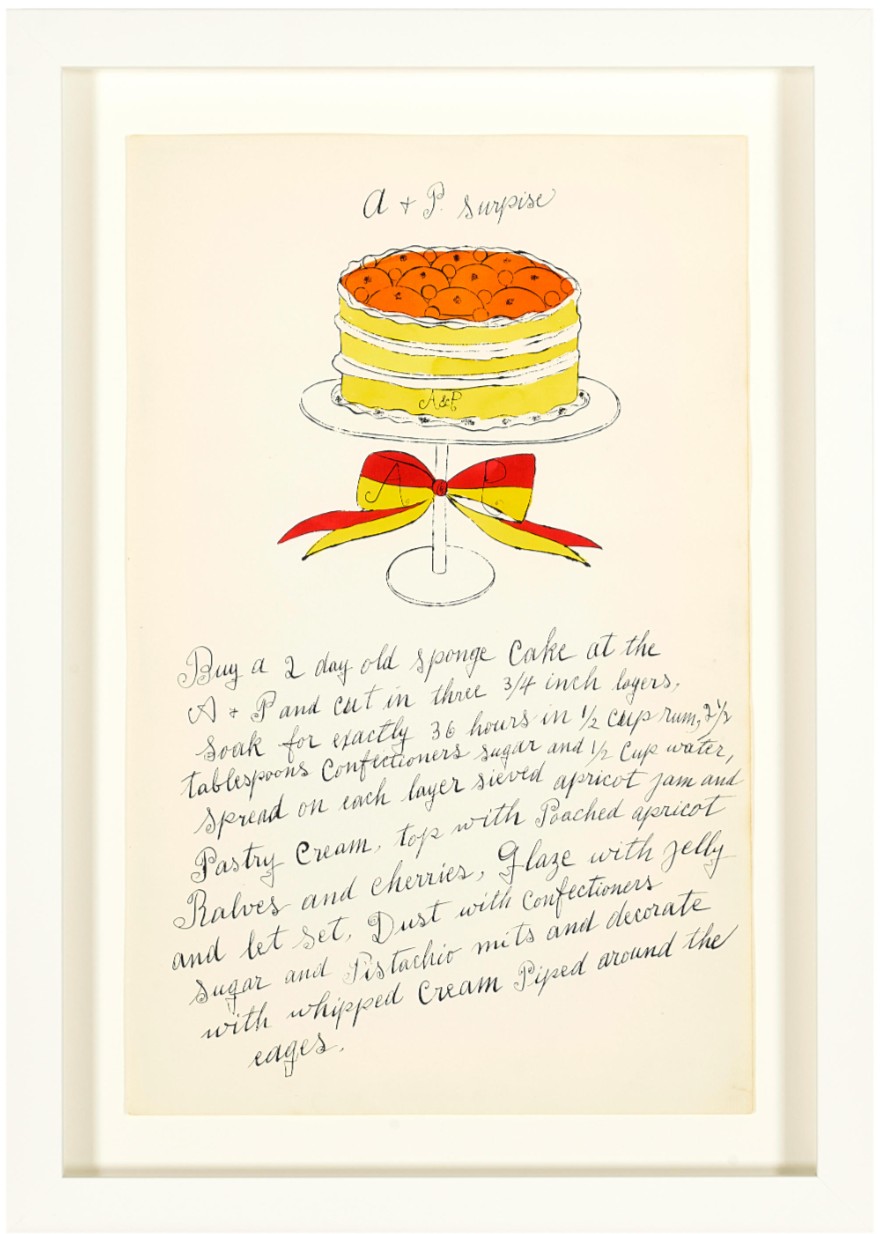 A + P. Surpise
A&P
A P
Buy a 2 day old sponge Cake at the
A + P and cut in three 3/4 inch layers,
Soak for exactly 36 hours in 1/2 cup rum, 2 1/2
tablespoons Confectioners sugar and 1/2 Cup water,
Spread on each layer sieved apricot jam and
Pastry Cream, top with Poached apricot
Ralves and cherries, Glaze with jelly
and let set, Dust with Confectioners
Sugar and Pistachio nuts and decorate
with whipped Cream Piped around the
eages.